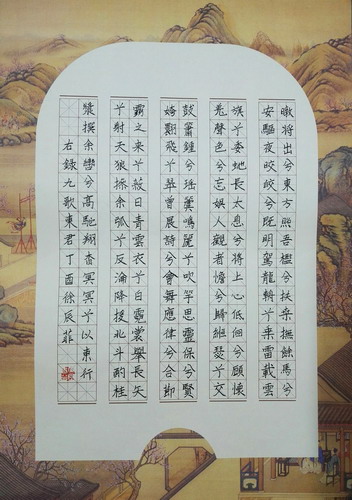 暾將出兮東方照吾檻兮扶桒撫馀馬兮
安驅夜皎皎兮既明駕龍輈兮乘雷載雲
旗兮委虵長太息兮將上心低佪兮顧懷
羌聲色兮忘娛人觀者憺兮歸緪瑟兮交
鼓簫鍾兮瑶簴鳴篪兮吹竽思靈保兮賢
姱翾飛兮翠曾展詩兮會舞應律兮合節
霝之来兮蔽日青雲衣兮白霓裳舉長矢
兮射天狼操余弧兮反淪降援北斗酌桂
漿撰余轡兮高馳翔杳冥冥兮以東行
右録九歌東君丁酉徐辰菲